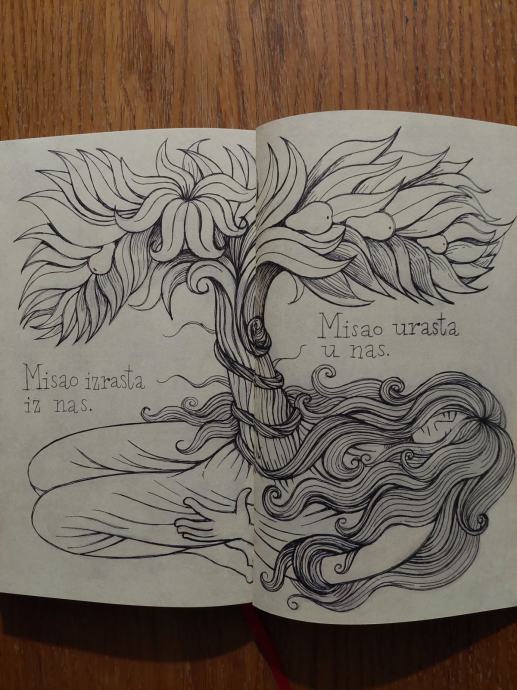 Misao izrasta
iz nas.
Misao urasta
u nas.